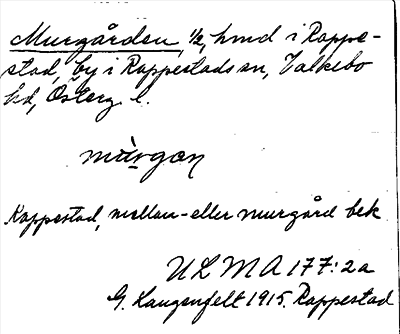 Murgården, 1/2, hmd i Rappe-
stad, by i Rappestads sn, Valkebo
hd, Österg. l.
mùrgon
Rappestad, mellan- eller murgård bek
ULMA 177:2a
G. Langenfelt 1915. Rappestad